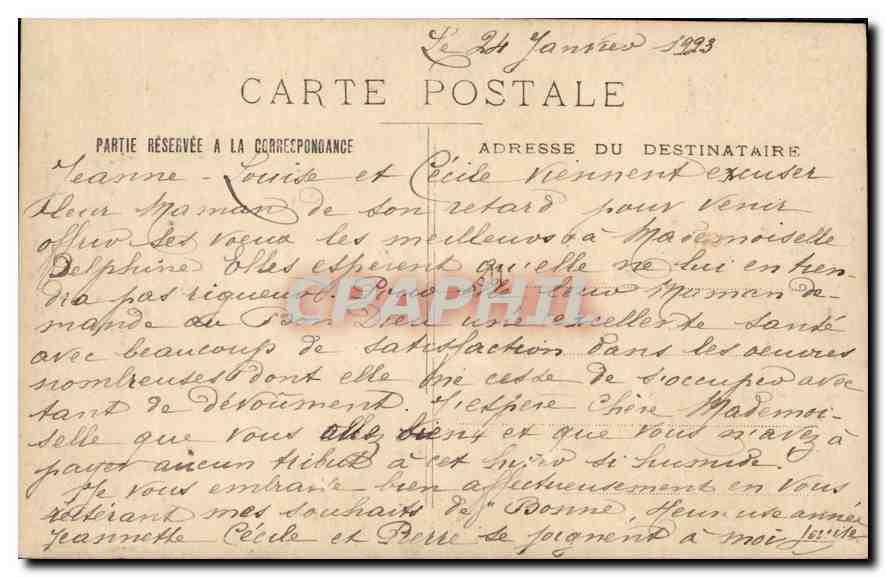 Le 24 Janvier 1923
CARTE POSTALE
PARTIE RÉSERVÉE A LA CORRESPONDANCE
ADRESSE DU DESTINATAIRE
Jeanne-Louise et Cécile viennent excuser
leur Maman de son retard pour venir
offrir ses voeux les meilleurs à Mademoiselle
Delphine Elles espèrent qu'elle ne lui en tien-
dra pas rigueur. leur Maman de-
CPAPHIL
mande au Bon Dieu une excellente santé
avec beaucoup de satisfaction dans les oeuvres
nombreuses dont elle ne cesse de s'occuper avec
tant de dévoûment. J'espère Chère Mademoi-
selle que vous allez bien et que vous n'avez à
payer aucun tribut à cet hiver si humide.
Je vous embrasse bien affectueusement en vous
réitérant mes souhaits de "Bonne Heureuse année
Jeannette Cécile et Pierre se joignent à moi